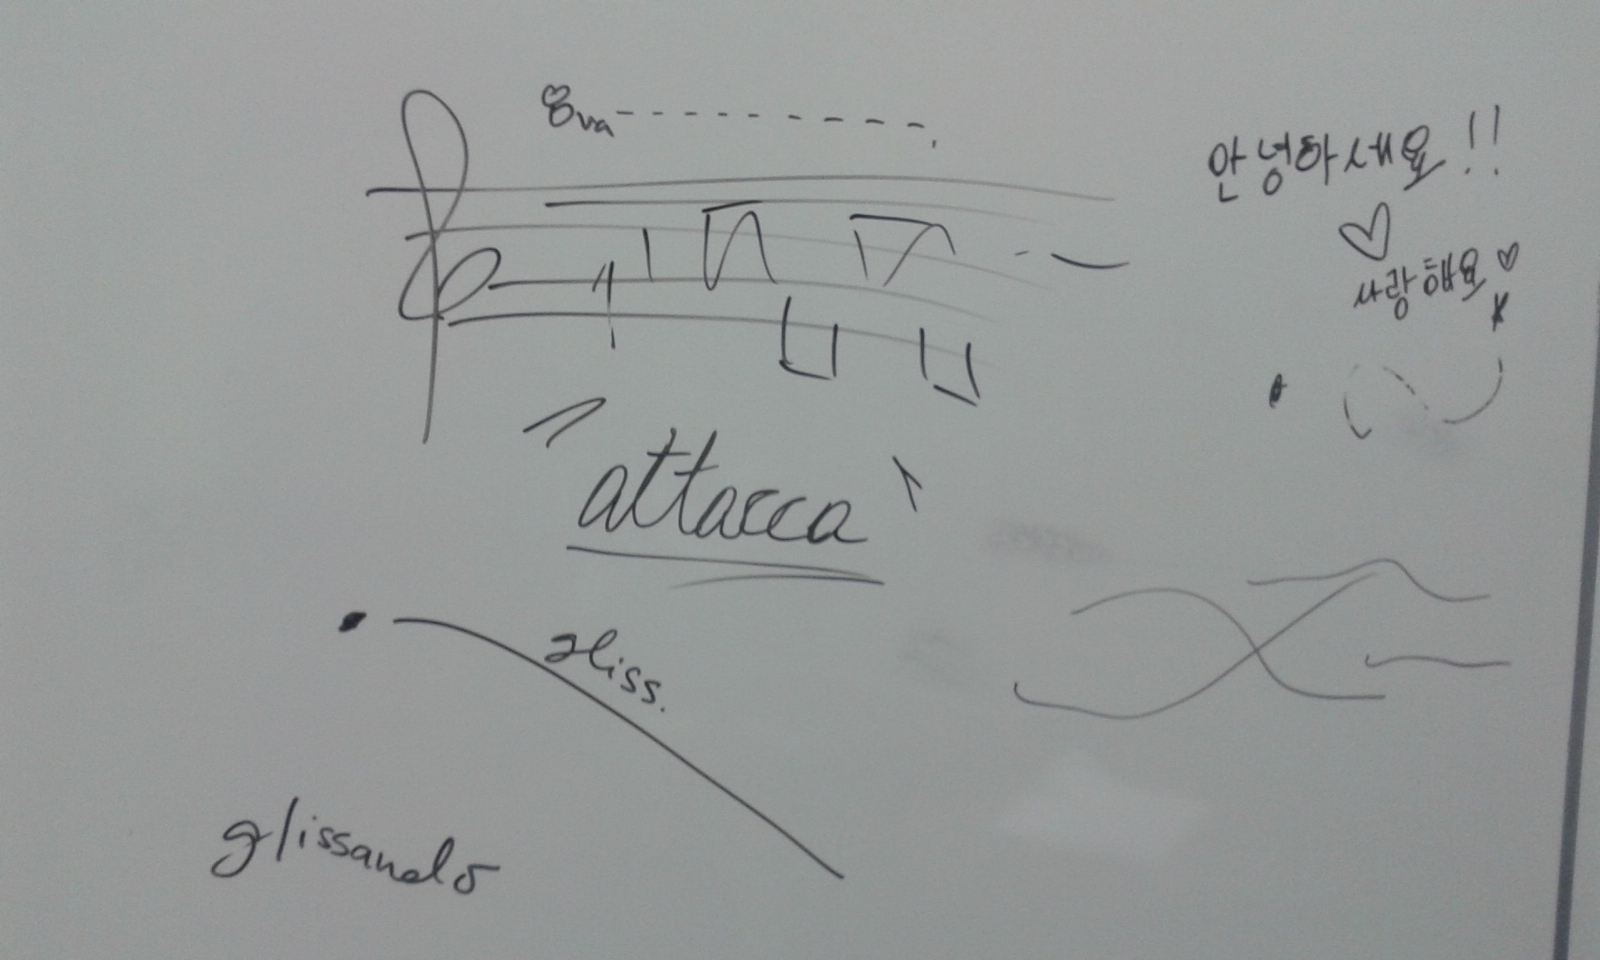 8va
안녕하세요!!
♡
사랑해요♡
attacca
gliss.
glissando